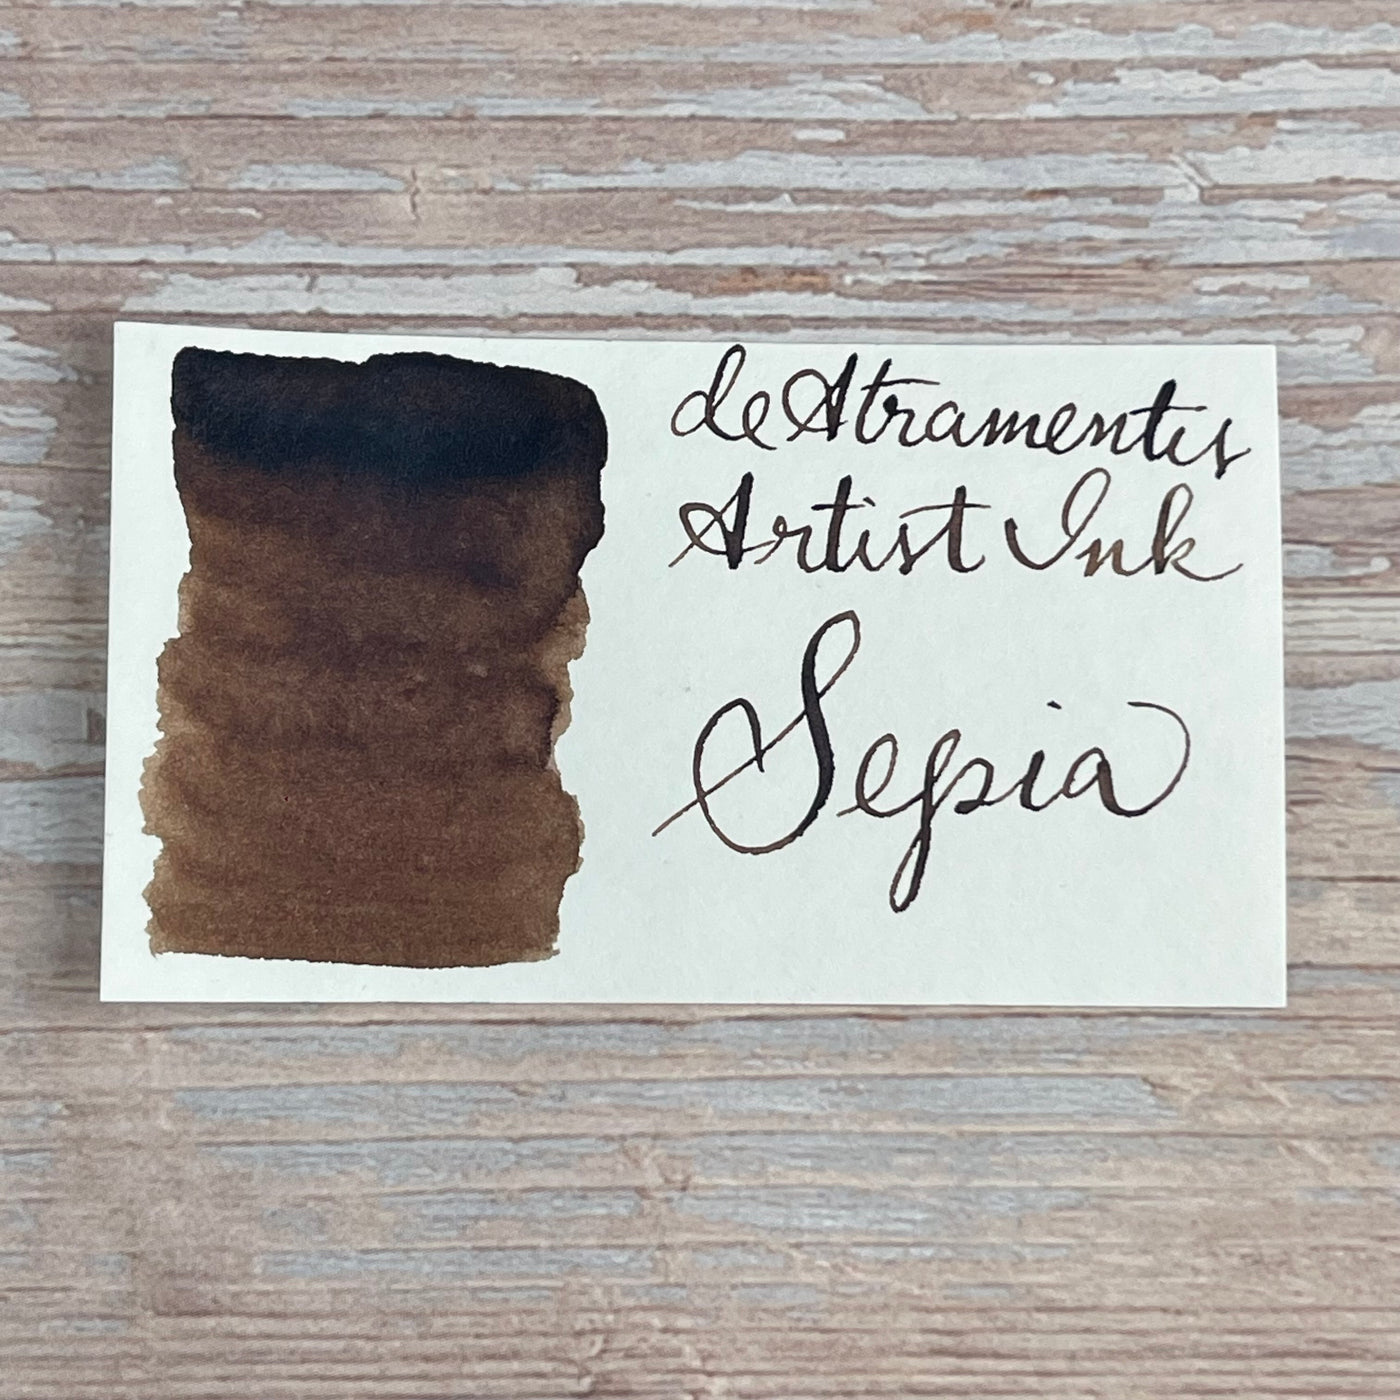 de Atramentis
Artist Ink
Sepia